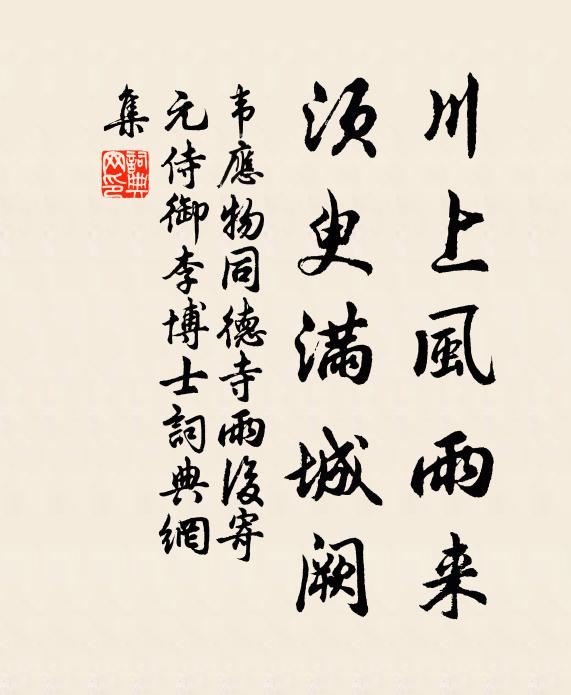 川上風雨来
須臾滿城闕
韦應物同德寺雨後寄
元侍御李博士詞典網
集
詞典
网印